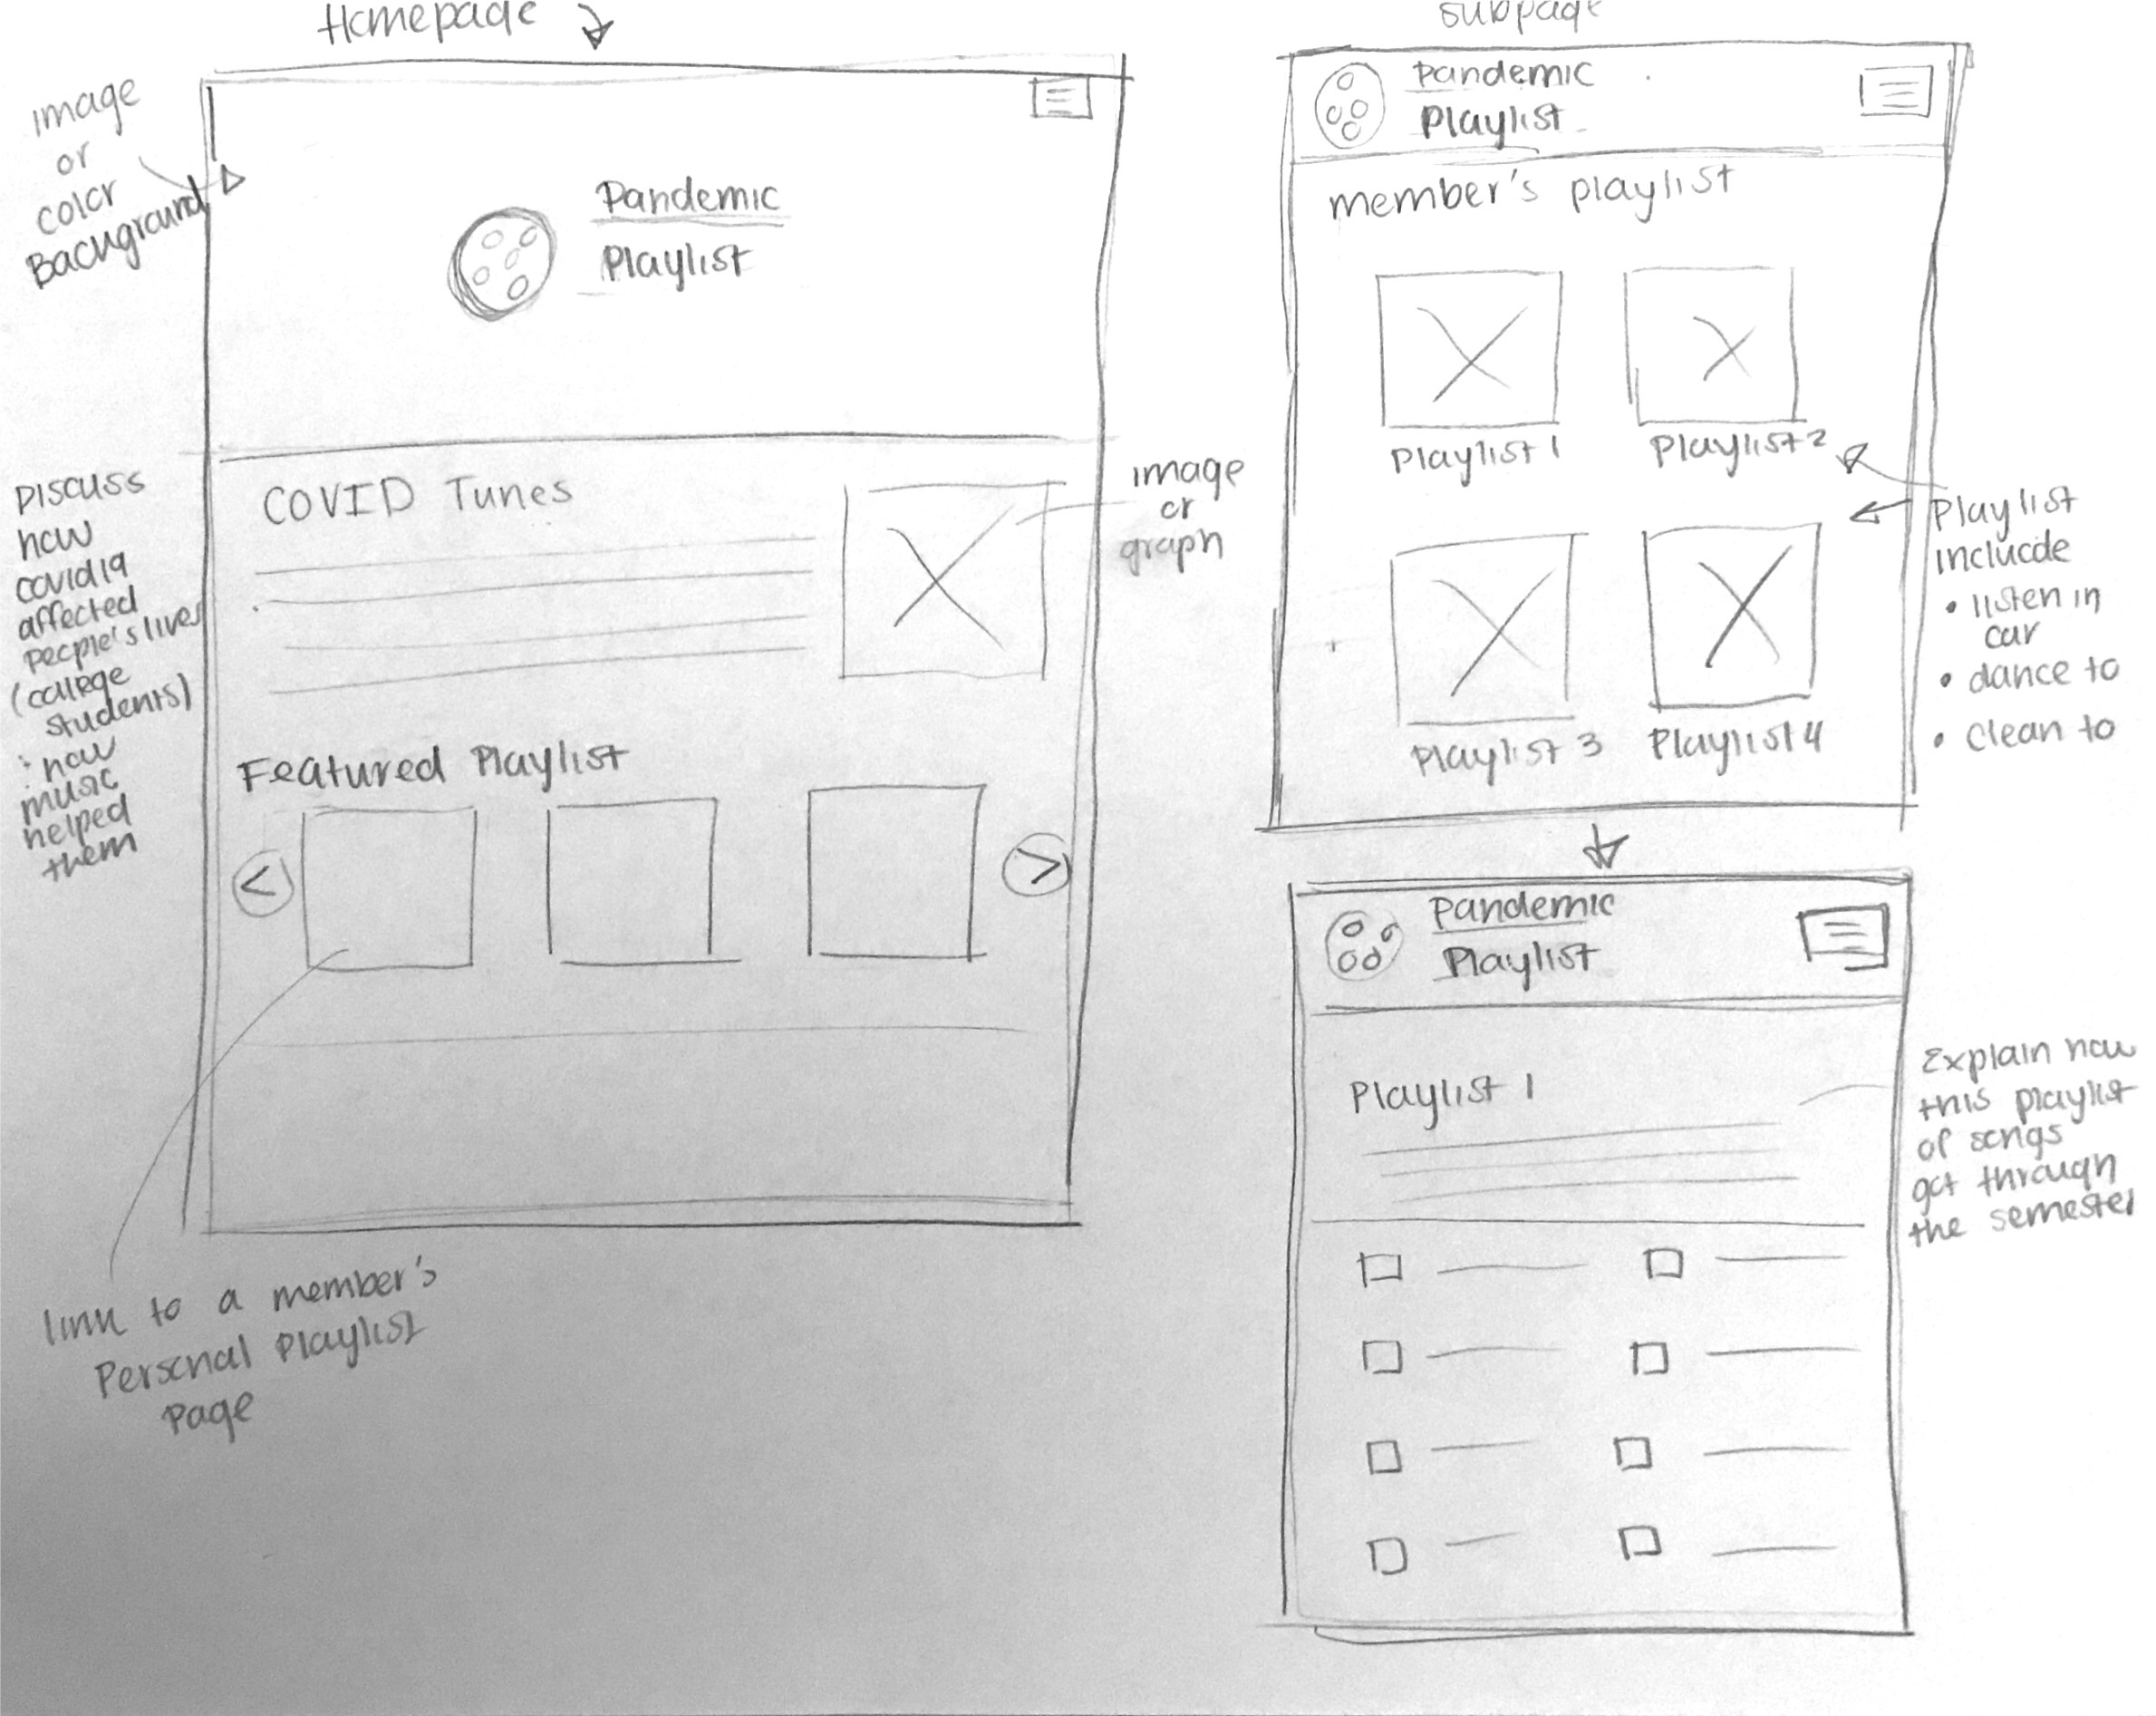 Homepage
image
or
color
Background
Pandemic
Playlist
COVID Tunes
image
or
graph
Discuss
how
covid19
affected
people's lives
(college
students)
: how
music
helped
them
Featured Playlist
<
>
link to a member's
Personal Playlist
Page
subpage
Pandemic
Playlist
member's playlist
Playlist 1
Playlist 2
Playlist 3
Playlist 4
Playlist
include
• listen in
car
• dance to
• clean to
Pandemic
Playlist
Playlist 1
Explain how
this playlist
of songs
got through
the semester